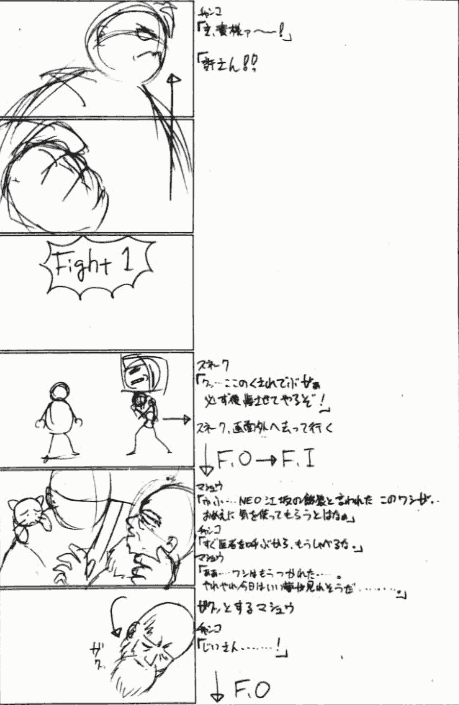 チャンコ
「き、貴様ァ〜!」
「許さん!!」
Fight 1
スネーク
「ク…ここのくされでぶがぁ
必ず後悔させてやるぞ!」
スネーク、画面外へ去って行く
F.O→F.I
マシュウ
「ふふ…NEO江坂の餓狼と言われた このワシが‥
おめえに気を使ってもらうとはなぁ」
チャンコ
「すぐ医者を呼ぶから、もうしゃべるな。」
マシュウ
「ああ…ワシはもうつかれた…。
やれやれ今日はいい夢が見れそうだ………。」
ガクッとするマシュウ
ガク
チャンコ
「じいさん……!」
F.O